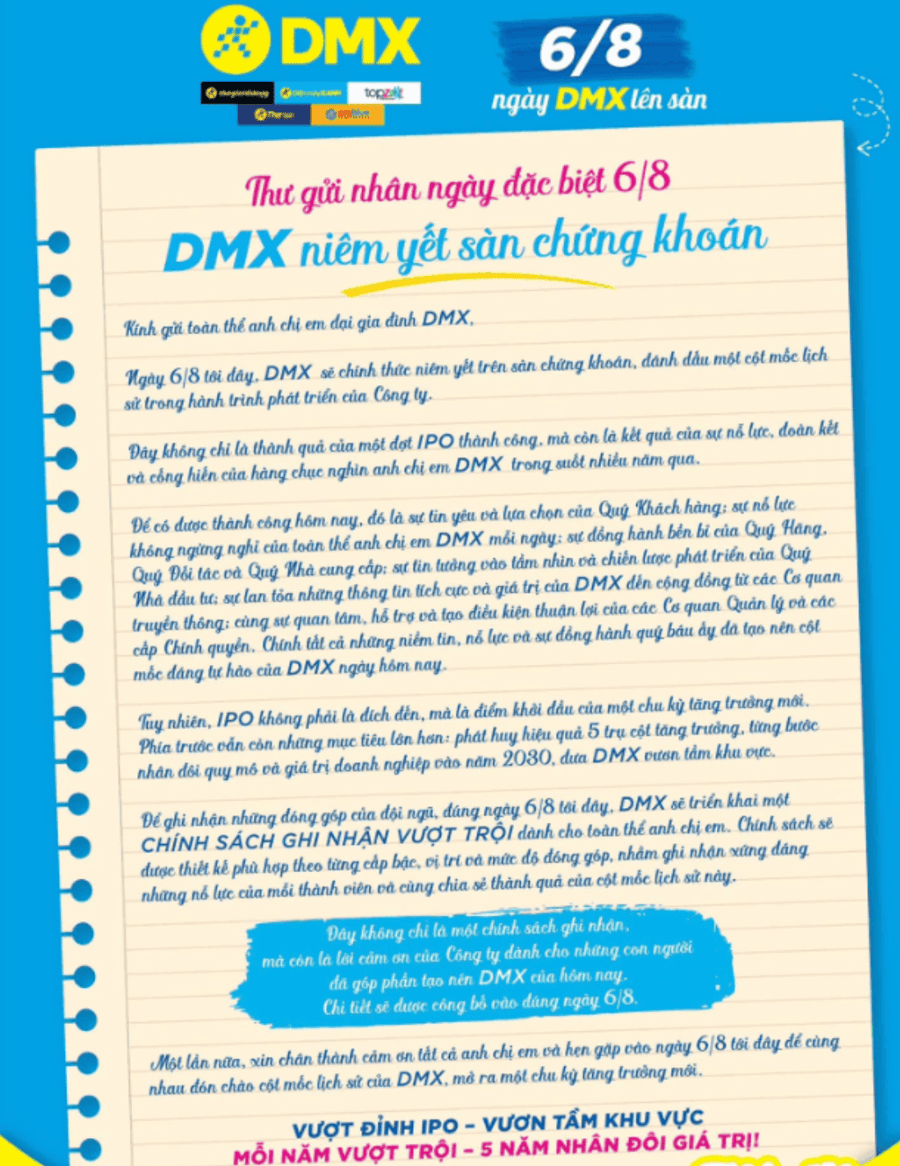 DMX
6/8
ngày DMX lên sàn
thegioididong
topzone
Thợ
Thư gửi nhân ngày đặc biệt 6/8
DMX niêm yết sàn chứng khoán
Kính gửi toàn thể anh chị em đại gia đình DMX,
Ngày 6/8 tới đây, DMX sẽ chính thức niêm yết trên sàn chứng khoán, đánh dấu một cột mốc lịch
sử trong hành trình phát triển của Công ty.
Đây không chỉ là thành quả của một đợt IPO thành công, mà còn là kết quả của sự nỗ lực, đoàn kết
và cống hiến của hàng chục nghìn anh chị em DMX trong suốt nhiều năm qua.
Để có được thành công hôm nay, đó là sự tin yêu và lựa chọn của Quý Khách hàng; sự nỗ lực
không ngừng nghỉ của toàn thể anh chị em DMX mỗi ngày; sự đồng hành bền bỉ của Quý Hãng,
Quý Đối tác và Quý Nhà cung cấp; sự tin tưởng vào tầm nhìn và chiến lược phát triển của Quý
Nhà đầu tư; sự lan tỏa những thông tin tích cực và giá trị của DMX đến cộng đồng từ các Cơ quan
truyền thông; cùng sự quan tâm, hỗ trợ và tạo điều kiện thuận lợi của các Cơ quan Quản lý và các
cấp Chính quyền. Chính tất cả những niềm tin, nỗ lực và sự đồng hành quý báu ấy đã tạo nên cột
mốc đáng tự hào của DMX ngày hôm nay.
Tuy nhiên, IPO không phải là đích đến, mà là điểm khởi đầu của một chu kỳ tăng trưởng mới.
Phía trước vẫn còn những mục tiêu lớn hơn: phát huy hiệu quả 5 trụ cột tăng trưởng, từng bước
nhân đôi quy mô và giá trị doanh nghiệp vào năm 2030, đưa DMX vươn tầm khu vực.
Để ghi nhận những đóng góp của đội ngũ, đúng ngày 6/8 tới đây, DMX sẽ triển khai một
CHÍNH SÁCH GHI NHẬN VƯỢT TRỘI dành cho toàn thể anh chị em. Chính sách sẽ
được thiết kế phù hợp theo từng cấp bậc, vị trí và mức độ đóng góp, nhằm ghi nhận xứng đáng
những nỗ lực của mỗi thành viên và cùng chia sẻ thành quả của cột mốc lịch sử này.
Đây không chỉ là một chính sách ghi nhận,
mà còn là lời cảm ơn của Công ty dành cho những con người
đã góp phần tạo nên DMX của hôm nay.
Chi tiết sẽ được công bố vào đúng ngày 6/8.
Một lần nữa, xin chân thành cảm ơn tất cả anh chị em và hẹn gặp vào ngày 6/8 tới đây để cùng
nhau đón chào cột mốc lịch sử của DMX, mở ra một chu kỳ tăng trưởng mới.
VƯỢT ĐỈNH IPO – VƯƠN TẦM KHU VỰC
MỖI NĂM VƯỢT TRỘI – 5 NĂM NHÂN ĐÔI GIÁ TRỊ!